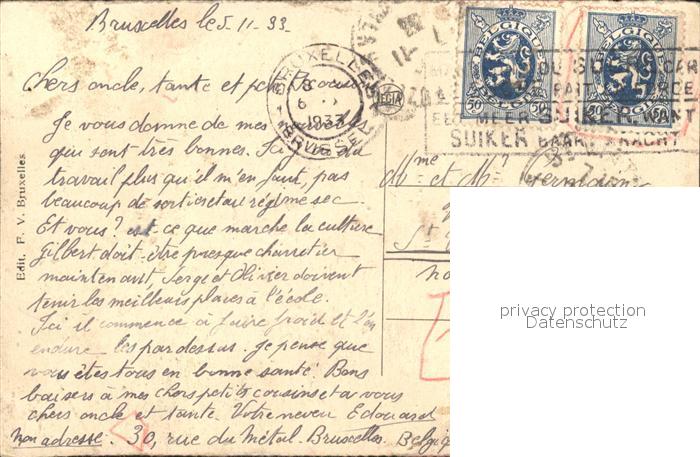 Bruxelles le 5-11-33
Chers oncle, tante et petits cousins
Je vous donne de mes
qui sont très bonnes. Ici
travail plus qu'il m'en faut, pas
beaucoup de sorties et au régime sec.
Et vous? est-ce que marche la culture
Gilbert doit-être presque charretier
maintenant, Serge et Olivier doivent
tenir les meilleurs places à l'école.
Ici il commence à faire froid et l'on
endure les pardessus. Je pense que
vous êtes tous en bonne santé. Bons
baisers à mes chers petits cousins et à vous
chers oncle et tante. Votre neveu Edouard
Mon adresse: 30, rue du Métal. Bruxelles. Belgiq
Edit. F. V. Bruxelles
BRUXELLES
6
1933
BRUSSEL
BELGIQUE
50
BELGIQUE
50
EEN MEER SUIKER WANT
SUIKER BAART KRACHT
Mme et Mr Germain
St
privacy protection
Datenschutz